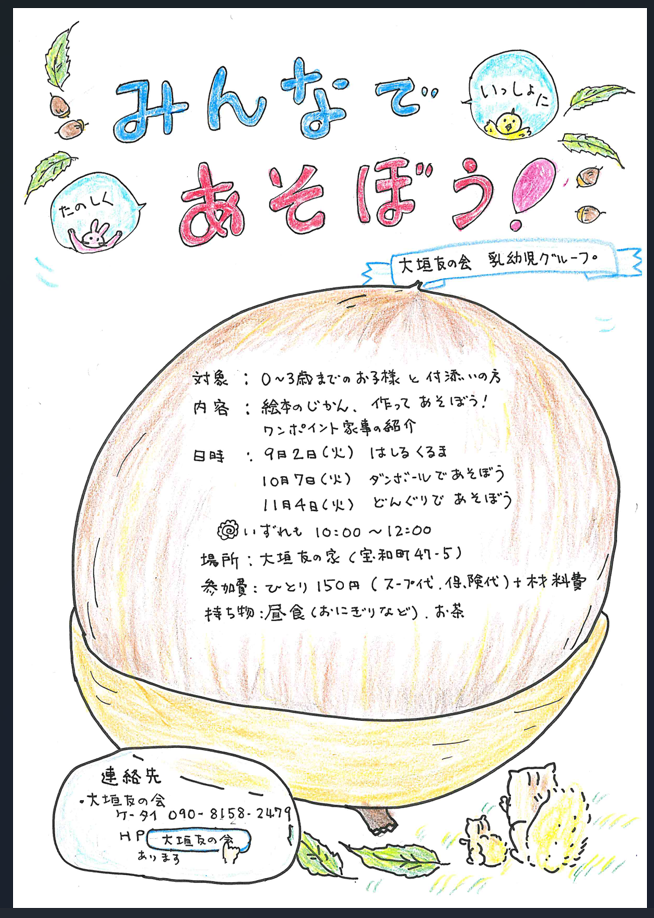 みんなで
いっしょに
あそぼう!
たのしく
大垣友の会 乳幼児グループ。
対象 : 0~3歳までのお子様と付添いの方
内容 : 絵本のじかん、作ってあそぼう!
ワンポイント家事の紹介
日時 : 9月2日(火) はしるくるま
10月7日(火) ダンボールであそぼう
11月4日(火) どんぐりであそぼう
いずれも 10:00 ~12:00
場所 : 大垣友の家 (宝和町47-5)
参加費 : ひとり 150円 (スープ代、保険代)+材料費
持ち物 : 昼食(おにぎりなど)、お茶
連絡先
・大垣友の会
ケータイ 090-8158-2479
HP 大垣友の会
あります